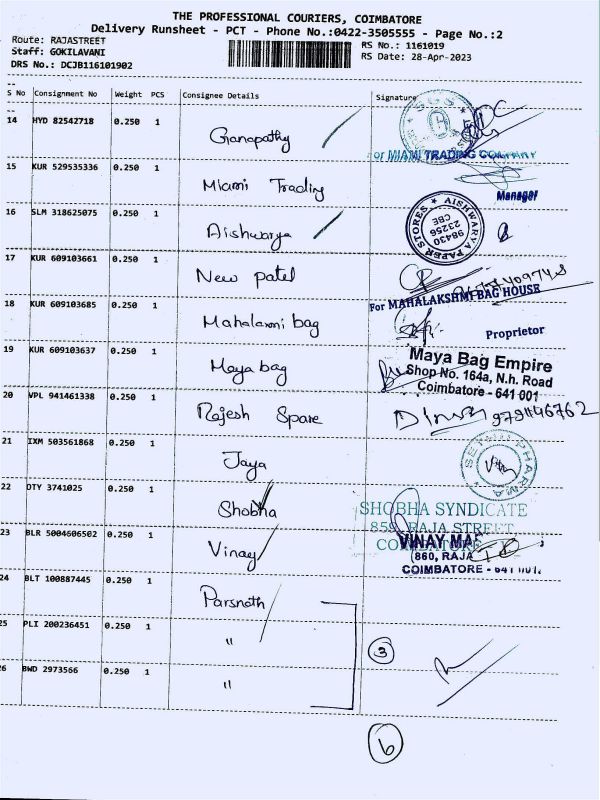 THE PROFESSIONAL COURIERS, COIMBATORE
Delivery Runsheet - PCT - Phone No.:0422-3505555 - Page No.:2
Route: RAJASTREET
RS No.: 1161019
Staff: GOKILAVANI
RS Date: 28-Apr-2023
DRS No.: DCJB116101902
S No Consignment No Weight PCS Consignee Details Signature
14 HYD 82542718 0.250 1 Ganapathy
or MIAMI TRADING COMPANY
15 KUR 529535336 0.250 1 Miami Trading
Manager
16 SLM 318625075 0.250 1 Aishwarya
AISHWARYA PAPER STORES
98430
23256
CBE
17 KUR 609103661 0.250 1 New patel
For MAHALAKSHMI BAG HOUSE
18 KUR 609103685 0.250 1 Mahalaxmi bag
Proprietor
19 KUR 609103637 0.250 1 Maya bag
Maya Bag Empire
Shop No. 164a, N.h. Road
Coimbatore - 641 001
20 VPL 941461338 0.250 1 Rajesh Spare
21 IXM 503561868 0.250 1 Jaya
22 DTY 3741025 0.250 1 Shobha
SHOBHA SYNDICATE
859, RAJA STREET
23 BLR 5004606502 0.250 1 Vinay
VINAY
860, RAJA
COIMBATORE - 641 001.
24 BLT 100887445 0.250 1 Parsnath
25 PLI 200236451 0.250 1 "
3
26 BWD 2973566 0.250 1 "
6